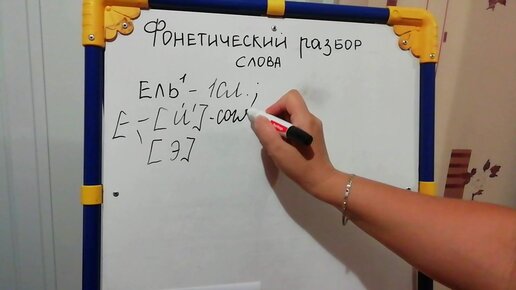 Фонетический разбор
слова
Ель¹ - 1сл.;
Е - [й'] - согл
[э]